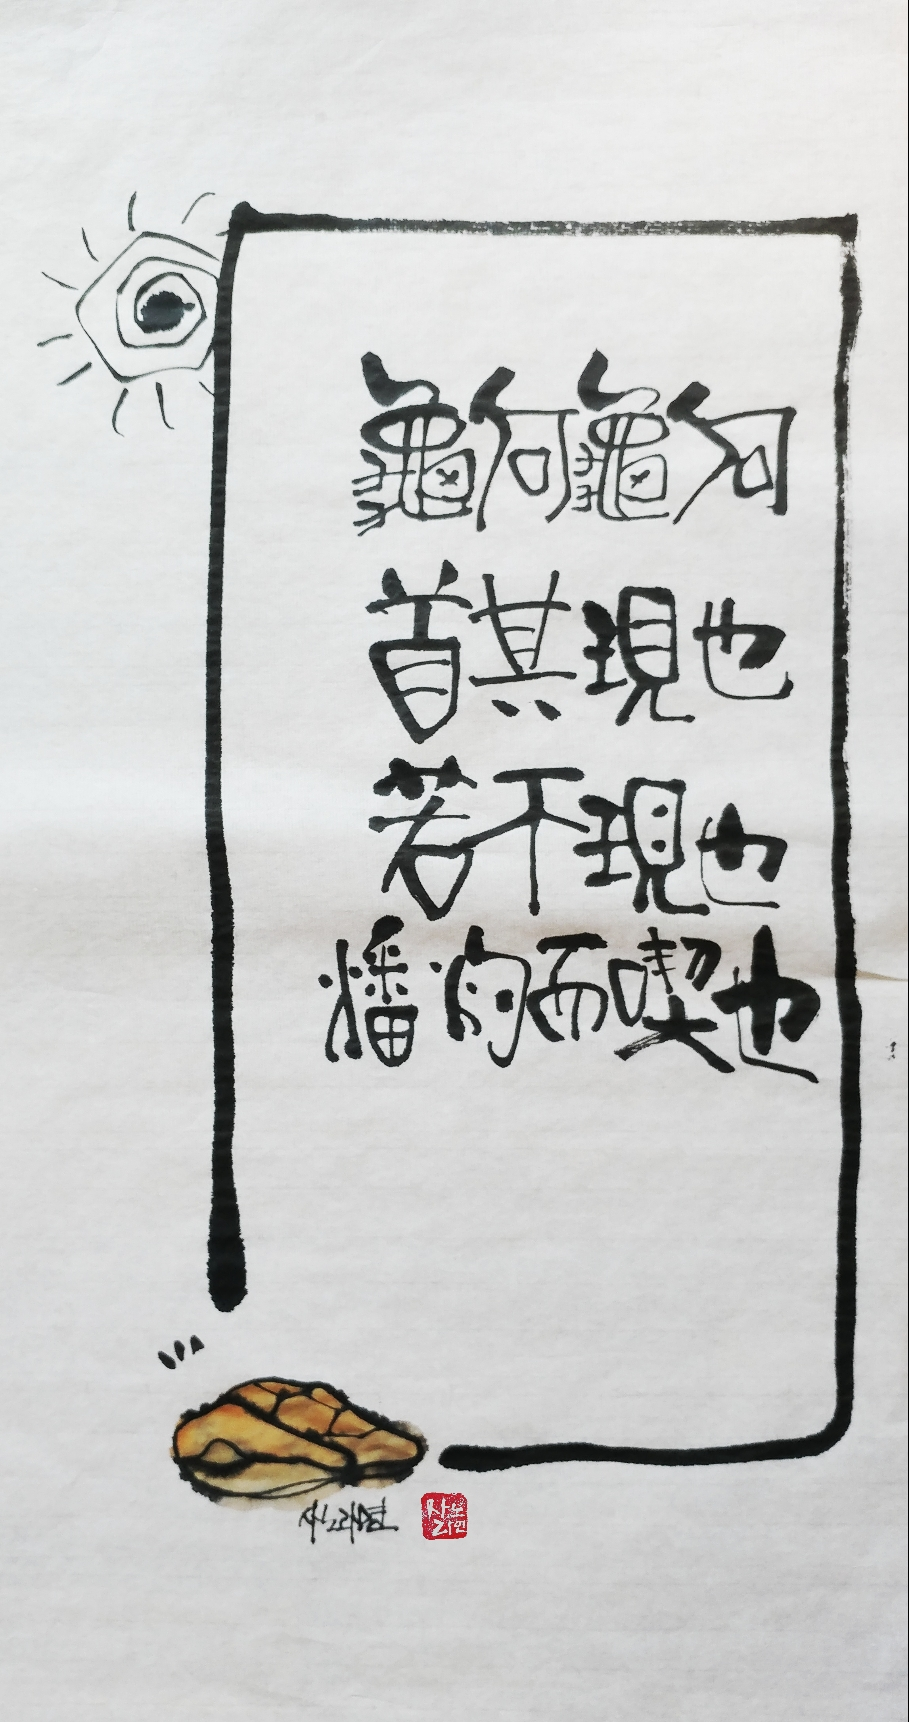 龜何龜何
首其現也
若不現也
燔灼而喫也